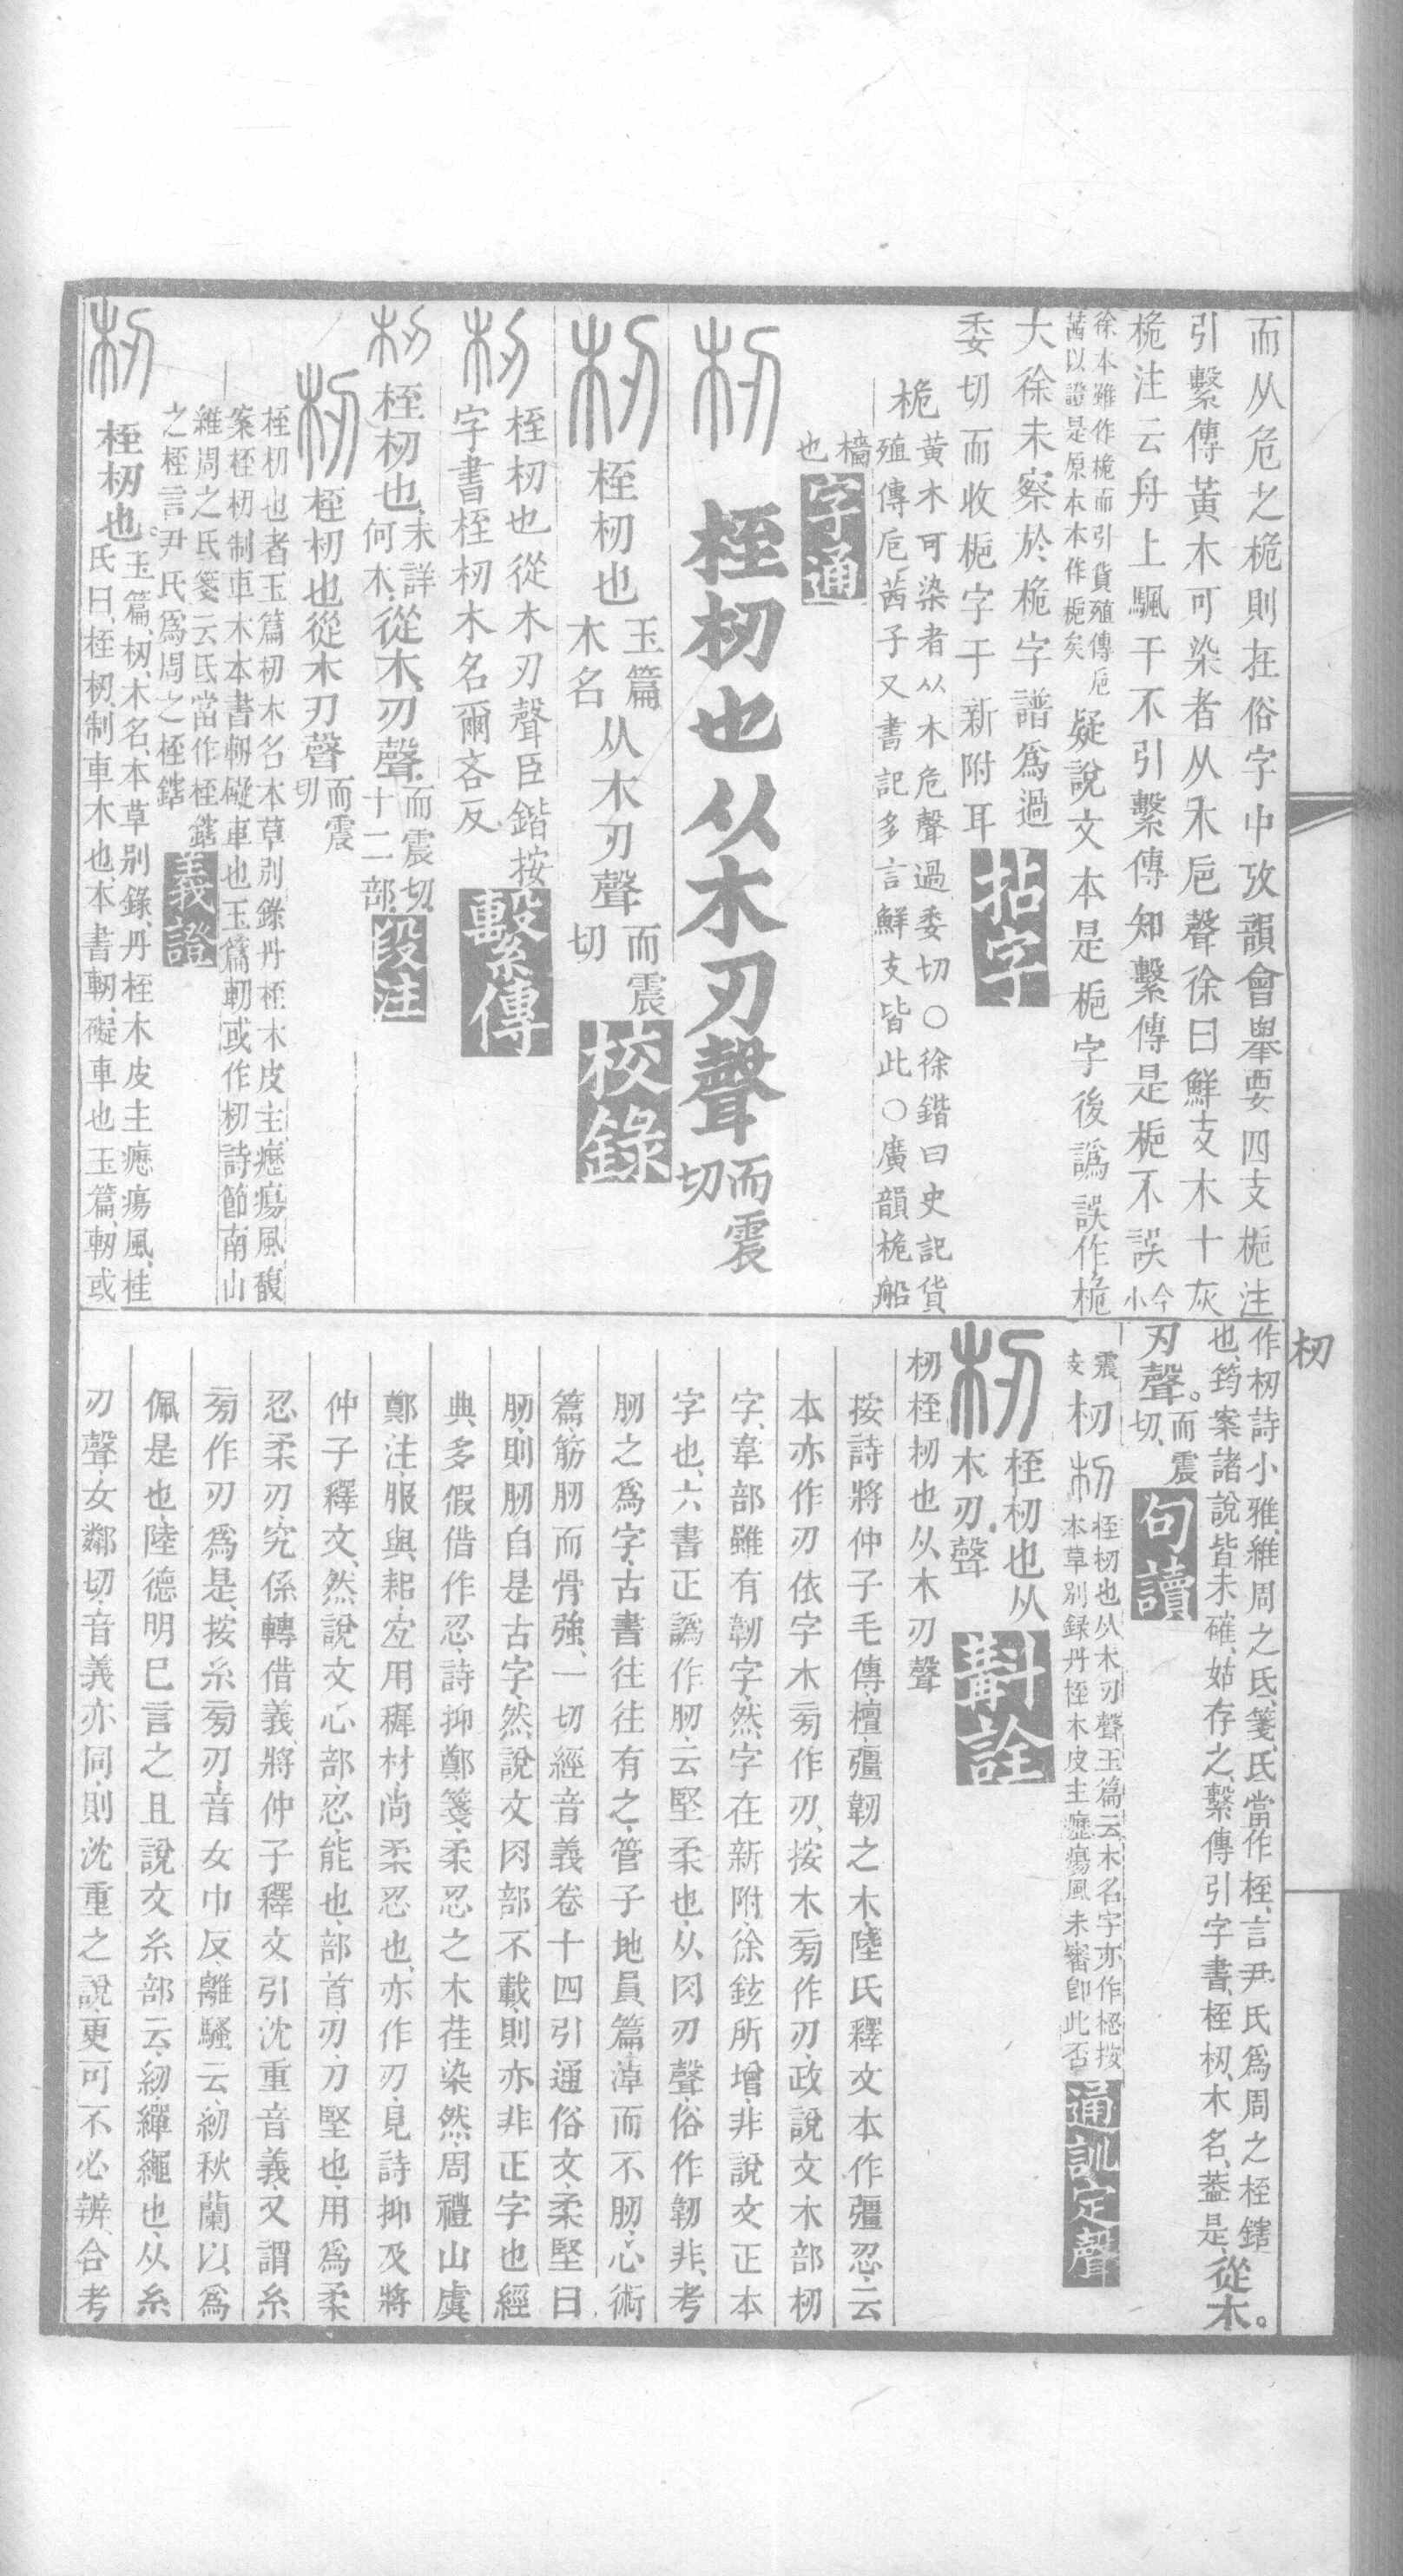 而从危之桅則在俗字中攷韻會舉要四支梔注
引繫傳黃木可染者从木卮聲徐曰鮮支木十灰
桅注云舟上颿干不引繫傳知繫傳是梔不誤今小
徐本雖作桅而引貨殖傳卮
茜以證是原本本作梔矣
疑說文本是梔字後譌誤作桅
大徐未察於桅字譜爲過
委切而收梔字于新附耳
拈字
桅
黃木可染者从木危聲過委切○徐鍇曰史記貨
殖傳卮茜子又書記多言鮮支皆此○廣韻桅船
檣也
字通
杒
桎杒也从木刃聲
而震切
杒
桎杒也
玉篇木名
从木刃聲
而震切
校錄
杒
桎杒也從木刃聲臣鍇按
字書桎杒木名爾吝反
繫傳
杒
桎杒也
未詳何木
從木刃聲
而震切
十二部
段注
杒
桎杒也從木刃聲
而震切
桎杒也者玉篇杒木名本草別錄丹桎木皮主癧瘍風馥
案桎杒制車木本書軔礙車也玉篇軔或作杒詩節南山
維周之氐箋云氐當作桎鎋
之桎言尹氏爲周之桎鎋
義證
杒
桎杒也
玉篇杒木名本草別錄丹桎木皮主癧瘍風桂
氏曰桎杒制車木也本書軔礙車也玉篇軔或
杒
作杒詩小雅維周之氐箋氐當作桎言尹氏爲周之桎鎋
也筠案諸說皆未確姑存之繫傳引字書桎杒木名蓋是
從木。
刃聲。
而震切
句讀
震
支
杒
杒
桎杒也从木刃聲玉篇云木名字亦作梕按
本草別錄丹桎木皮主癧瘍風未審卽此否
通訓定聲
杒
桎杒也从
木刃聲
斠詮
杒桎杒也从木刃聲
按詩將仲子毛傳檀彊韌之木陸氏釋文本作彊忍云
本亦作刃依字木旁作刃按木旁作刃政說文木部杒
字韋部雖有韌字然字在新附徐鉉所增非說文正本
字也六書正譌作肕云堅柔也从肉刃聲俗作韌非考
肕之爲字古書往往有之管子地員篇淖而不肕心術
篇筋肕而骨強一切經音義卷十四引通俗文柔堅曰
肕則肕自是古字然說文肉部不載則亦非正字也經
典多假借作忍詩抑鄭箋柔忍之木荏染然周禮山虞
鄭注服與耜宜用穉材尚柔忍也亦作刃見詩抑及將
仲子釋文然說文心部忍能也部首刃刀堅也用爲柔
忍柔刃究係轉借義將仲子釋文引沈重音義又謂糸
旁作刃爲是按糸旁刃音女巾反離騷云紉秋蘭以爲
佩是也陸德明已言之且說文糸部云紉繟繩也从糸
刃聲女鄰切音義亦同則沈重之說更可不必辨合考